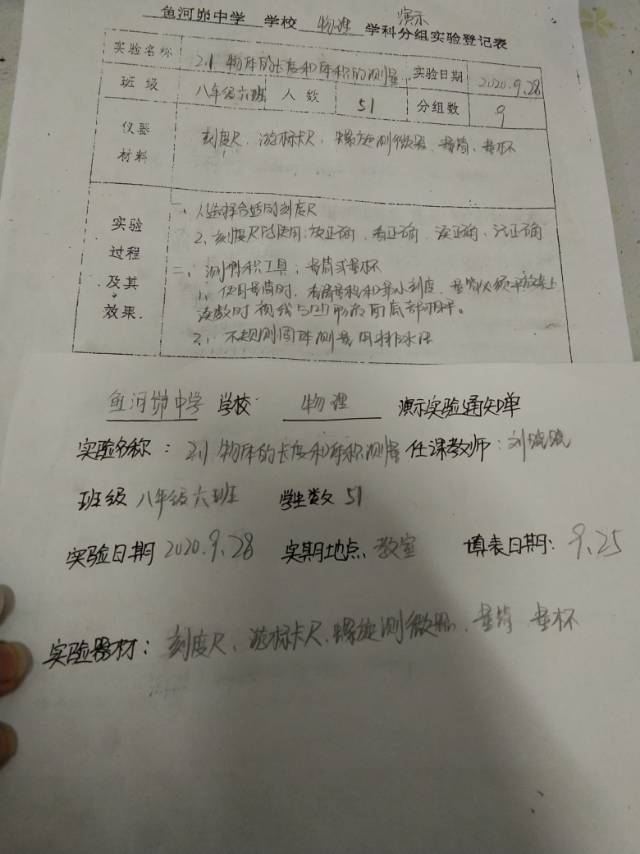 鱼河峁中学 学校 物理 演示 学科分组实验登记表
实验名称 2.1 物体的长度和体积的测量 实验日期 2020.9.28
班级 八年级六班 人数 51 分组数 9
仪器材料 刻度尺、游标卡尺、螺旋测微器、量筒、量杯
实验过程及其效果.
一、1、选择合适的刻度尺
2、刻度尺的使用:放正确,看正确,读正确,记正确
二、测体积工具:量筒或量杯
1、使用量筒时,看清量程和最小刻度,量筒必须平放桌上
读数时视线与凹形液面底部相平。
2、不规则固体测量用排水法
鱼河峁中学 学校 物理 演示实验通知单
实验名称: 2.1 物体的长度和体积测量 任课教师:刘
班级 八年级六班 学生数 51
实验日期 2020.9.28 实期地点、教室 填表日期: 9.25
实验器材: 刻度尺、游标卡尺、螺旋测微器、量筒 量杯